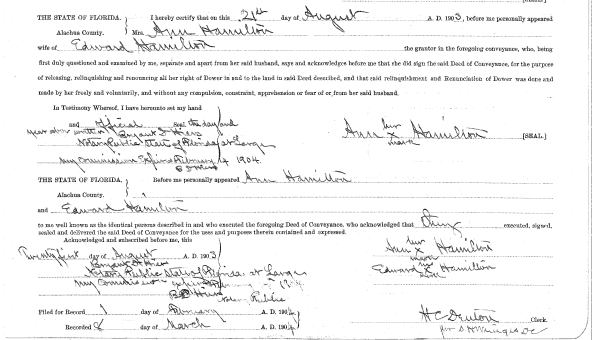 THE STATE OF FLORIDA. } I hereby certify that on this 21st day of August A. D. 1903, before me personally appeared
Alachua County. Mrs. Ann Hamilton
wife of Edward Hamilton the grantor in the foregoing conveyance, who, being
first duly questioned and examined by me, separate and apart from her said husband, says and acknowledges before me that she did sign the said Deed of Conveyance, for the purpose
of releasing, relinquishing and renouncing all her right of Dower in and to the land in said Deed described, and that said relinquishment and Renunciation of Dower was done
and made by her freely and voluntarily, and without any compulsion, constraint, apprehension or fear of or from her said husband.
In Testimony Whereof, I have hereunto set my hand
and official Seal the day and
year above written
Notary Public State of Florida at Large
My Commission Expires February 1904.
her
Ann x Hamilton [SEAL.]
mark
THE STATE OF FLORIDA. } Before me personally appeared Ann Hamilton
Alachua County.
and Edward Hamilton
to me well known as the identical persons described in and who executed the foregoing Deed of Conveyance, who acknowledged that they executed, signed,
sealed and delivered the said Deed of Conveyance for the uses and purposes therein contained and expressed.
Acknowledged and subscribed before me, this
Twenty first day of August A. D. 1903
Notary Public State of Florida at Large
My Commission
Notary Public
her
Ann x Hamilton
mark
his
Edward x Hamilton
mark
Filed for Record 1 day of February A. D. 1904
Recorded 8 day of March A. D. 1904
H C Denton Clerk